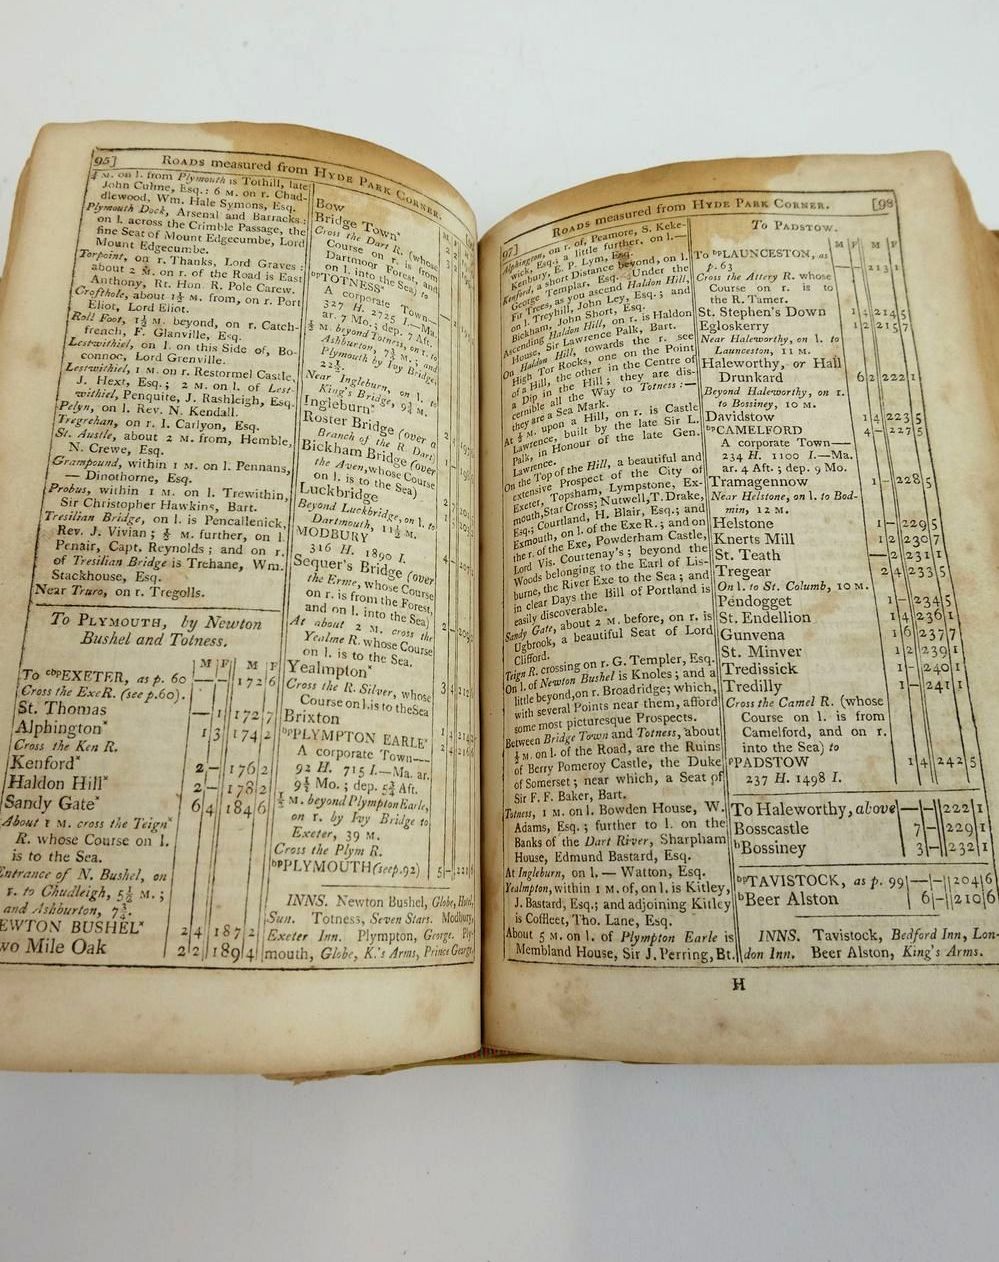 95]
ROADS measured from HYDE PARK CORNER.
¼ M. on l. from Plymouth is Tothill, late
John Culme, Esq.: 6 M. on r. Chad-
dlewood, Wm. Hale Symons, Esq.
Plymouth Dock, Arsenal and Barracks:
on l. across the Crimble Passage, the
fine Seat of Mount Edgecumbe, Lord
Mount Edgecumbe.
Torpoint, on r. Thanks, Lord Graves:
about 2 M. on r. of the Road is East
Anthony, Rt. Hon. R. Pole Carew.
Crofthole, about 1½ M. from, on r. Port
Eliot, Lord Eliot.
Roll Foot, 1½ M. beyond, on r. Catch-
french, F. Glanville, Esq.
Lestwithiel, on l. on this Side of, Bo-
connoc, Lord Grenville.
Lestwithiel, 1 M. on r. Restormel Castle,
J. Hext, Esq.; 2 M. on l. of Lest-
withiel, Penquite, J. Rashleigh, Esq.
Pelyn, on l. Rev. N. Kendall.
Tregrehan, on r. I. Carlyon, Esq.
St. Austle, about 2 M. from, Hemble,
N. Crewe, Esq.
Grampound, within 1 M. on l. Pennans,
— Dinothorne, Esq.
Probus, within 1 M. on l. Trewithin,
Sir Christopher Hawkins, Bart.
Tresilian Bridge, on l. is Pencallenick,
Rev. J. Vivian; ½ M. further, on l.
Penair, Capt. Reynolds; and on r.
of Tresilian Bridge is Trehane, Wm.
Stackhouse, Esq.
Near Truro, on r. Tregolls.
To PLYMOUTH, by Newton
Bushel and Totness.
M F M F
To cbpEXETER, as p. 60 — — 172 6
Cross the Ex R. (see p. 60).
St. Thomas — 1 172 7
Alphington* 1 3 174 2
Cross the Ken R.
Kenford* 2 - 176 2
Haldon Hill* 2 - 178 2
Sandy Gate* 6 4 184 6
About 1 M. cross the Teign*
R. whose Course on l.
is to the Sea.
Entrance of N. Bushel, on
r. to Chudleigh, 5½ M.;
and Ashburton, 7½.
EWTON BUSHEL* 2 4 187 2
wo Mile Oak 2 2 189 4
Bow
Bridge Town*
Cross the Dart R. (whose
Course on r. is from
Dartmoor Forest, and
on l. into the Sea) to
bpTOTNESS*
A corporate Town—
327 H. 2725 I.—Ma.
ar. 7 Mo.; dep. 7 Aft.
½ M. beyond Totness, on r. to
Ashburton, 7½ M. and
Plymouth by Ivy Bridge,
22½.
Near Ingleburn, on l. to
King's Bridge, 9¾ M.
Ingleburn*
Roster Bridge (over a
Branch of the R. Dart)
Bickham Bridge (over
the Aven, whose Course
on l. is to the Sea)
Luckbridge
Beyond Luckbridge, on l. to
Dartmouth, 11½ M.
MODBURY
316 H. 1890 I.
Sequer's Bridge (over
the Erme, whose Course
on r. is from the Forest,
and on l. into the Sea)
At about 2 M. cross the
Yealme R. whose Course
on l. is to the Sea.
Yealmpton*
Cross the R. Silver, whose
Course on l. is to the Sea
Brixton
bpPLYMPTON EARLE*
A corporate Town—
92 H. 715 I.—Ma. ar.
9½ Mo.; dep. 5¾ Aft.
½ M. beyond Plympton Earle,
on r. by Ivy Bridge to
Exeter, 39 M.
Cross the Plym R.
bpPLYMOUTH (see p. 92)
INNS. Newton Bushel, Globe, Hotel,
Sun. Totness, Seven Stars. Modbury,
Exeter Inn. Plympton, George. Ply-
mouth, Globe, K.'s Arms, Prince George.
97]
ROADS measured from HYDE PARK CORNER.
[98
Alphington, on r. of, Peamore, S. Keke-
wick, Esq.; a little further, on l.—
Kenbury, E. P. Lym, Esq.
Kenford, a short Distance beyond, on l.
George Templar, Esq. Under the
Fir Trees, as you ascend Haldon Hill,
on l. Treyhill, John Ley, Esq.; and
Bickham, John Short, Esq.
Ascending Haldon Hill, on r. is Haldon
House, Sir Lawrence Palk, Bart.
On Haldon Hill, towards the r. see
High Tor Rocks, one on the Point
of a Hill, the other in the Centre of
a Dip in the Hill; they are dis-
cernible all the Way to Totness:—
they are a Sea Mark.
At ½ M. upon a Hill, on r. is Castle
Lawrence, built by the late Sir L.
Palk, in Honour of the late Gen.
Lawrence.
On the Top of the Hill, a beautiful and
extensive Prospect of the City of
Exeter, Topsham, Lympstone, Ex-
mouth, Star Cross; Nutwell, T. Drake,
Esq.; Courtland, H. Blair, Esq.; and
Exmouth, on l. of the Exe R.; and on
the r. of the Exe, Powderham Castle,
Lord Vis. Courtenay's; beyond the
Woods belonging to the Earl of Lis-
burne, the River Exe to the Sea; and
in clear Days the Bill of Portland is
easily discoverable.
Sandy Gate, about 2 M. before, on r. is
Ugbrook, a beautiful Seat of Lord
Clifford.
Teign R. crossing on r. G. Templer, Esq.
On l. of Newton Bushel is Knoles; and a
little beyond, on r. Broadridge; which,
with several Points near them, afford
some most picturesque Prospects.
Between Bridge Town and Totness, about
½ M. on l. of the Road, are the Ruins
of Berry Pomeroy Castle, the Duke
of Somerset; near which, a Seat of
Sir F. F. Baker, Bart.
Totness, 1 M. on l. Bowden House, W.
Adams, Esq.; further to l. on the
Banks of the Dart River, Sharpham
House, Edmund Bastard, Esq.
At Ingleburn, on l. — Watton, Esq.
Yealmpton, within 1 M. of, on l. is Kitley,
J. Bastard, Esq.; and adjoining Kitley
is Coffleet, Tho. Lane, Esq.
About 5 M. on l. of Plympton Earle is
Membland House, Sir J. Perring, Bt.
To PADSTOW.
M F M F
To bpLAUNCESTON, as
p. 63 — — 213 1
Cross the Attery R. whose
Course on r. is to
the R. Tamer.
St. Stephen's Down 1 4 214 5
Egloskerry 1 2 215 7
Near Haleworthy, on l. to
Launceston, 11 M.
Haleworthy, or Hall
Drunkard 6 2 222 1
Beyond Haleworthy, on r.
to Bossiney, 10 M.
Davidstow 1 4 223 5
bpCAMELFORD 4 - 227 5
A corporate Town—
234 H. 1100 I.—Ma.
ar. 4 Aft.; dep. 9 Mo.
Tramagennow 1 - 228 5
Near Helstone, on l. to Bod-
min, 12 M.
Helstone 1 - 229 5
Knerts Mill 1 2 230 7
St. Teath — 2 231 1
Tregear 2 4 233 5
On l. to St. Columb, 10 M.
Pendogget 1 - 234 5
St. Endellion 1 4 236 1
Gunvena 1 6 237 7
St. Minver 1 2 239 1
Tredissick 1 - 240 1
Tredilly 1 - 241 1
Cross the Camel R. (whose
Course on l. is from
Camelford, and on r.
into the Sea) to
pPADSTOW 1 4 242 5
237 H. 1498 I.
To Haleworthy, above — — 222 1
Bosscastle 7 - 229 1
bBossiney 3 - 232 1
bpTAVISTOCK, as p. 99 — — 204 6
bBeer Alston 6 - 210 6
INNS. Tavistock, Bedford Inn, Lon-
don Inn. Beer Alston, King's Arms.
H